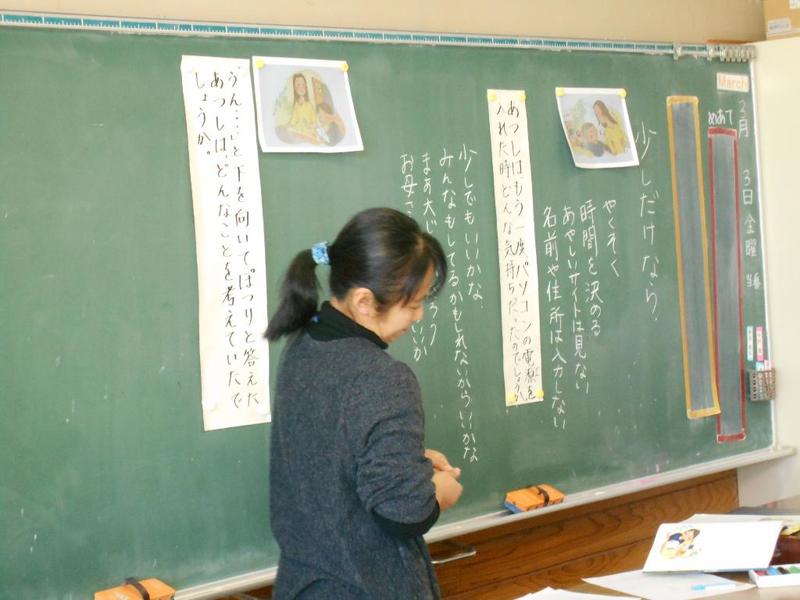 March
3月 3日 金曜
めあて
少しだけなら
やくそく
時間を決める
あやしいサイトは見ない
名前や住所は入力しない
あつしは、もう一度パソコンの電源を
入れた時どんな気持ちだったのでしょうか。
少しでもいいかな。
みんなもしてるかもしれないからいいかな
まあ大じ
お母さ
「うん……」と下を向いてぽつりと答えた
あつしは、どんなことを考えていたで
しょうか。